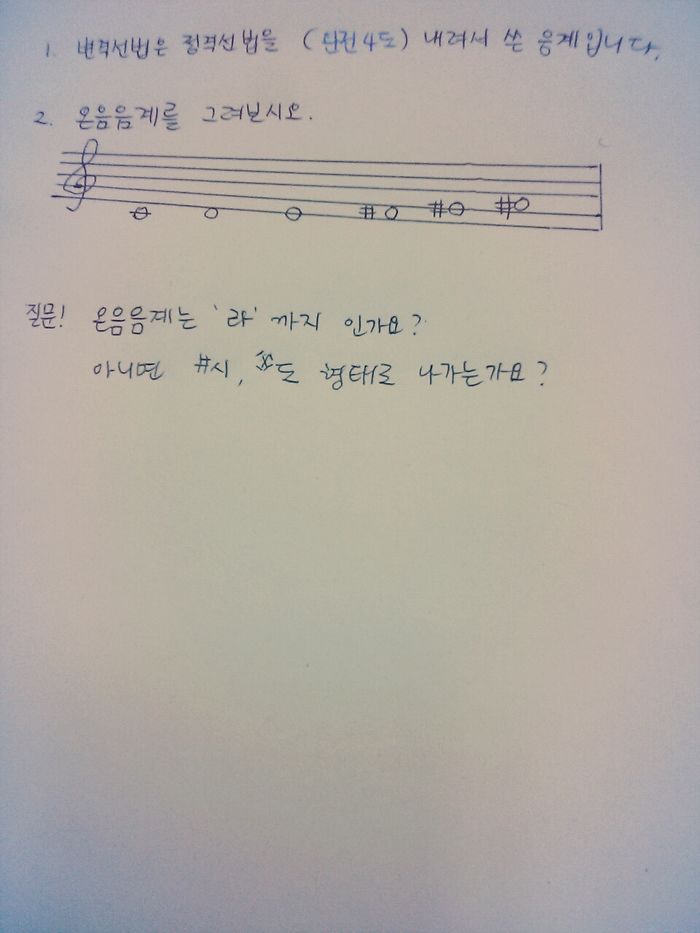 1. 변격선법은 정격선법을 (완전4도) 내려서 쓴 음계입니다.
2. 온음음계를 그려보시오.
질문! 온음음계는 '라' 까지 인가요?
아니면 #시, 도 형태로 나가는가요?